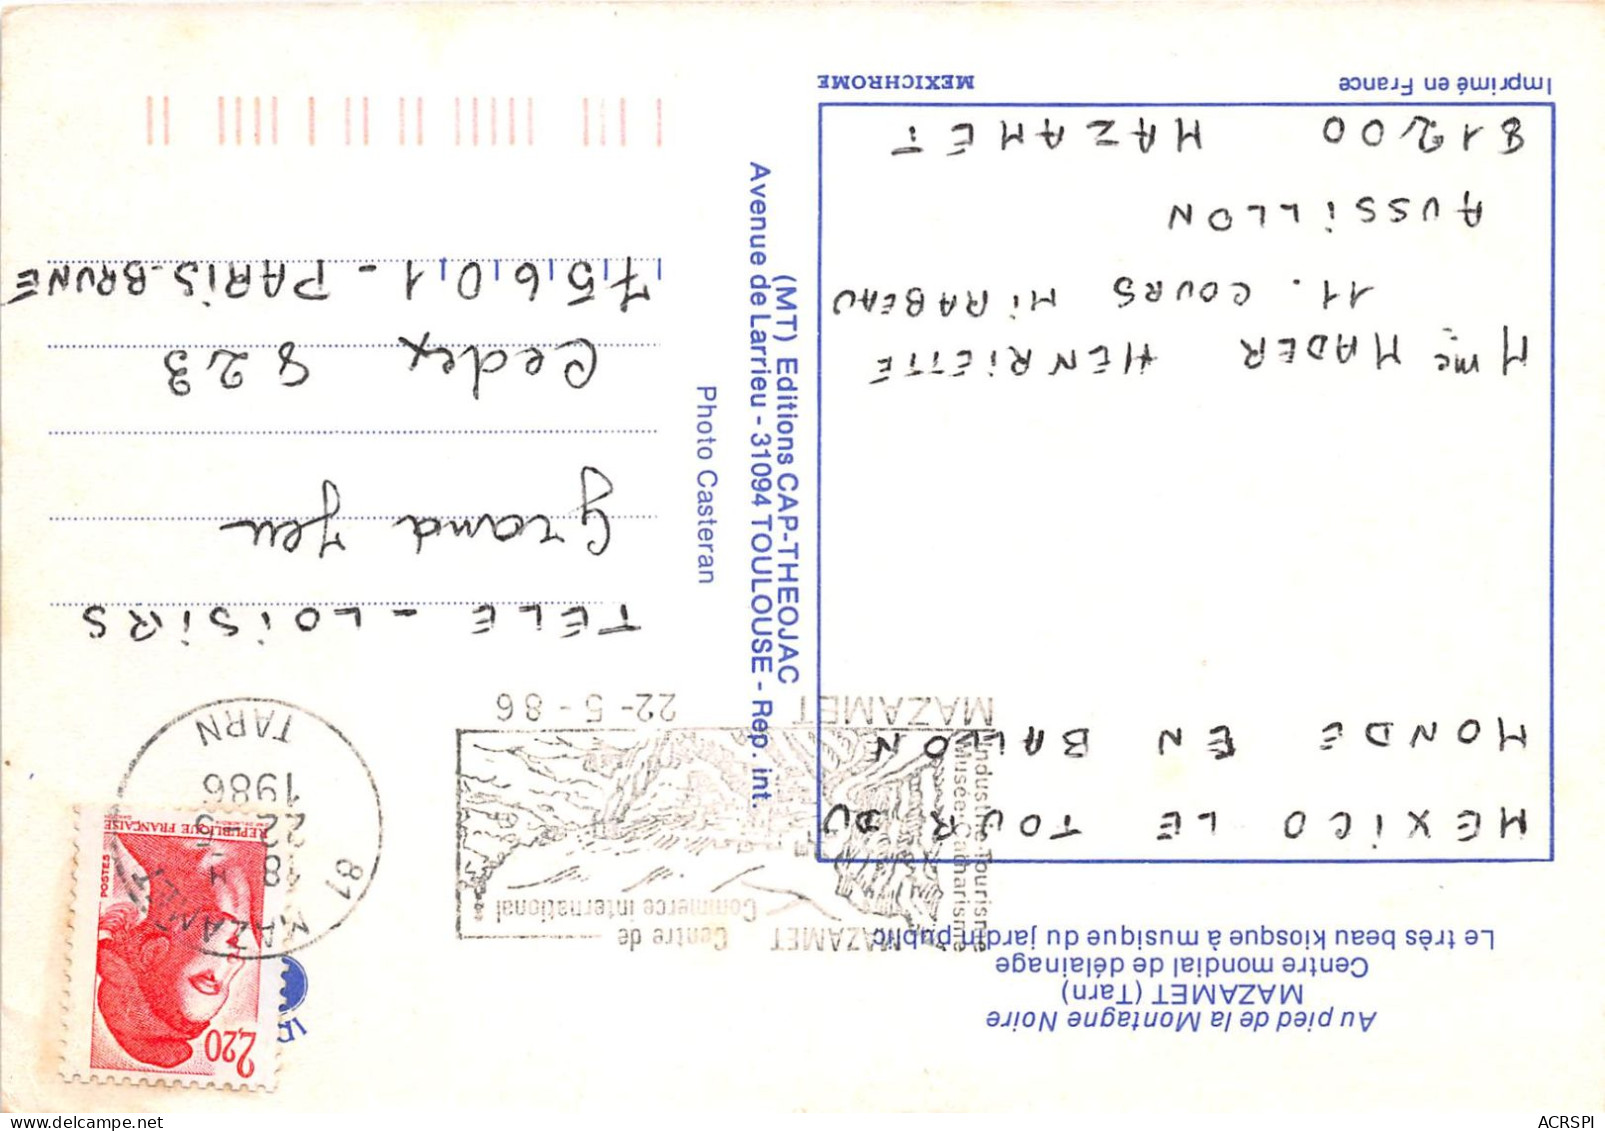 Au pied de la Montagne Noire
MAZAMET (Tarn)
Centre mondial de délainage
Le très beau kiosque à musique du jardin public
MEXICO LE TOUR DU
MONDE EN BALLON
Mme MADER HENRIETTE
11. COURS MIRABEAU
AUSSILLON
81200 MAZAMET
Imprimé en France
MEXICHROME
(MT) Editions CAP-THEOJAC
Avenue de Larrieu - 31094 TOULOUSE - Rep. int.
Photo Casteran
2,20
REPUBLIQUE FRANÇAISE
POSTES
81 MAZAMET
18 H
22-5
1986
TARN
MAZAMET
Centre de
Commerce international
Industrie Tourisme
Musée Catharisme
MAZAMET 22-5-86
TELE-LOISIRS
Grand Jeu
Cedex 823
75601-PARIS-BRUNE
ACRSPI